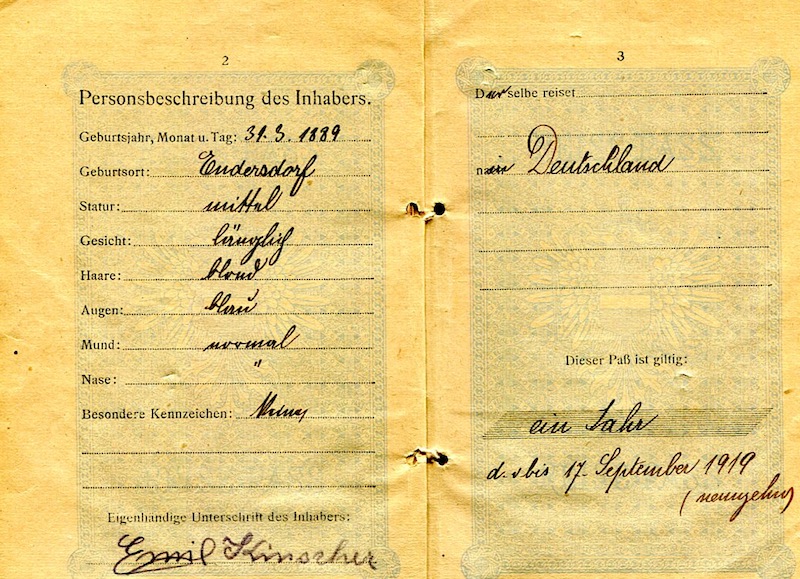 2
Personsbeschreibung des Inhabers.
Geburtsjahr, Monat u. Tag: 31. 3. 1889
Geburtsort: Endersdorf
Statur: mittel
Gesicht: länglich
Haare: blond
Augen: blau
Mund: normal
Nase: "
Besondere Kennzeichen: keine
Eigenhändige Unterschrift des Inhabers:
Emil Kinscher
3
Derselbe reiset
in Deutschland
Dieser Paß ist giltig:
ein Jahr
d. i. bis 17. September 1919
(neunzehn)